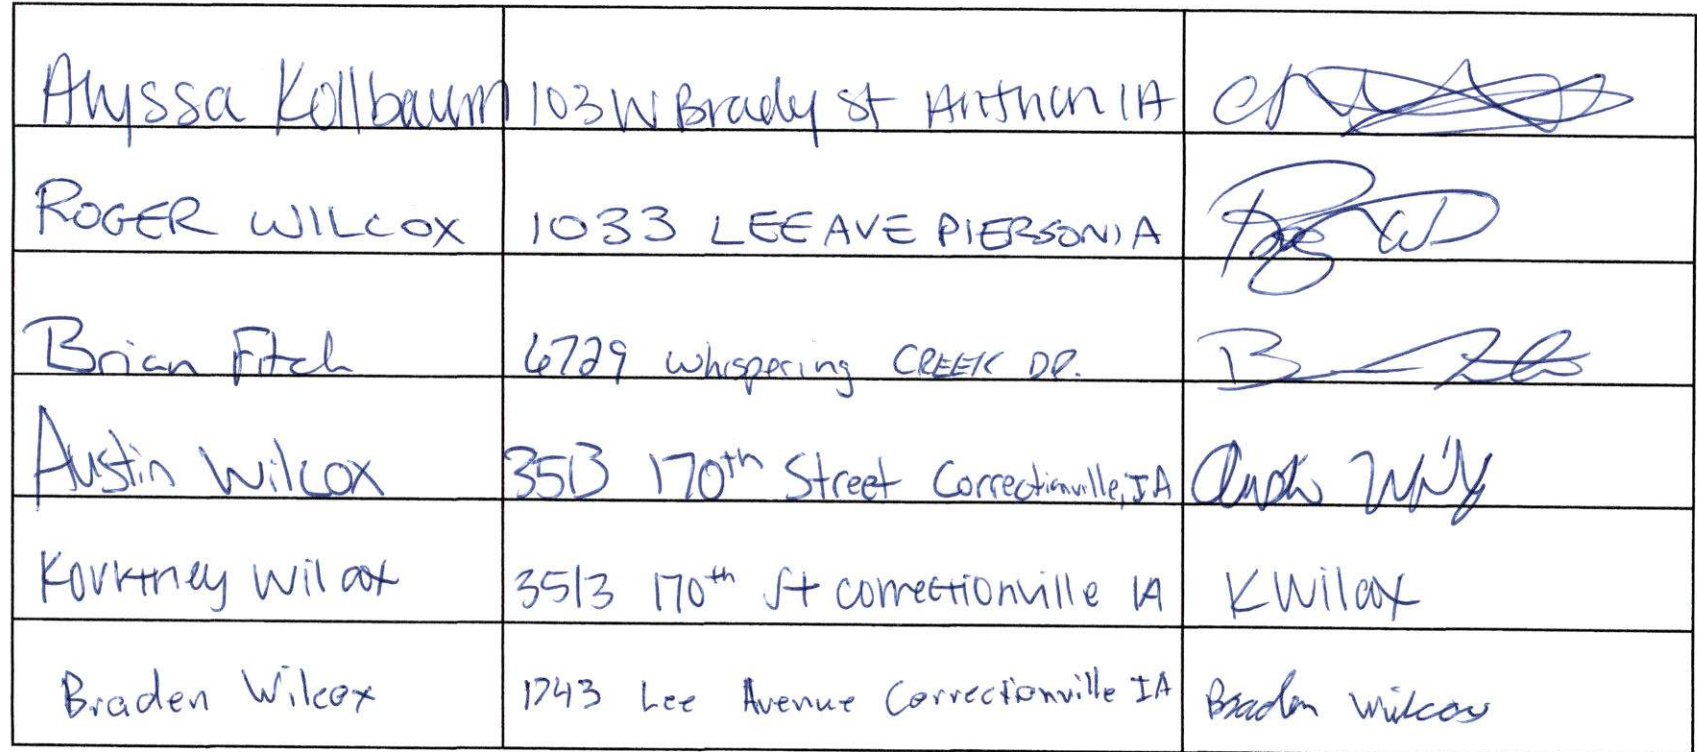 Alyssa Kollbaum 103 W Brady St Anthon IA
ROGER WILCOX 1033 LEE AVE PIERSON IA
Brian Fitch 6729 Whispering CREEK DR.
Austin Wilcox 3513 170th Street Correctionville, IA
Kourtney Wilcox 3513 170th St Correctionville IA K Wilcox
Braden Wilcox 1743 Lee Avenue Correctionville IA Braden Wilcox